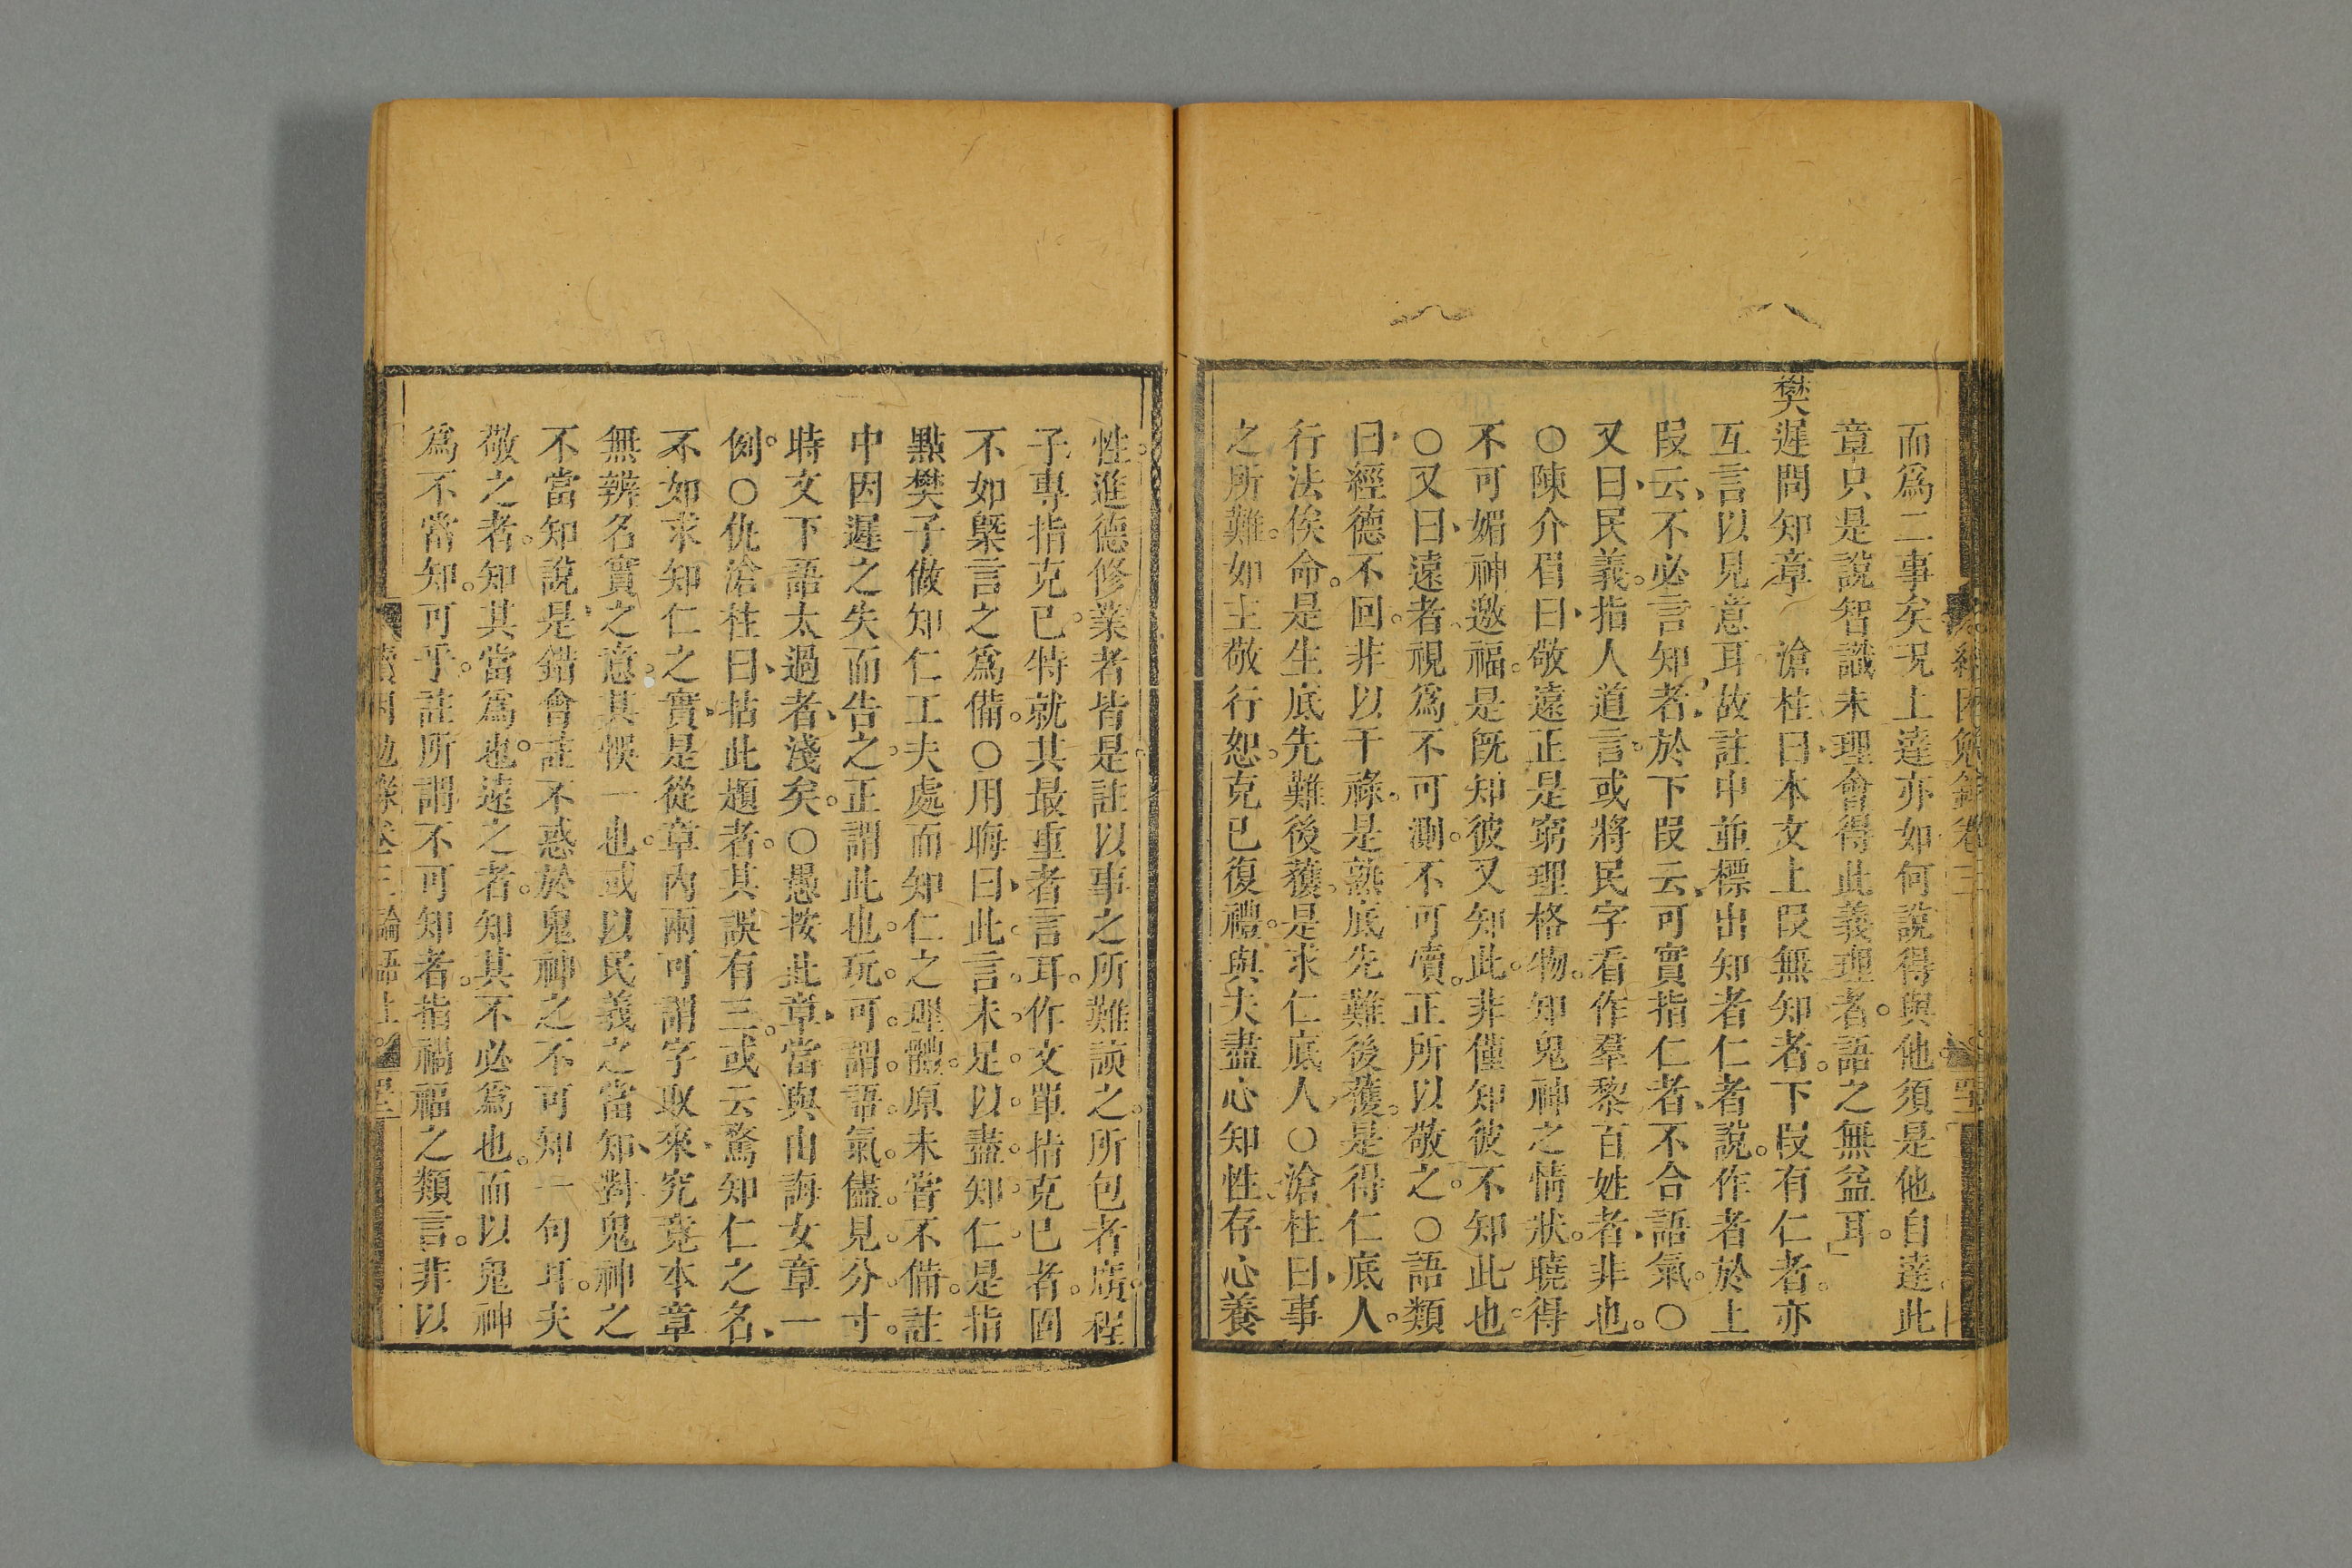 而爲二事矣況上達亦如何說得與他須是他自達。此
章只是說智識未理會得此義理者。語之無益耳。」
樊遲問知章　滄柱曰、本文上段無知者。下段有仁者。亦
互言以見意耳。故註中並標出知者仁者說。作者於上
段云、不必言知者、於下段云、可實指仁者、不合語氣。○
又曰、民義。指人道言。或將民字看作羣黎百姓者、非也。
○陳介眉曰、敬遠正是窮理格物。知鬼神之情狀。曉得
不可媚神邀福。是旣知彼又知此。非僅知彼不知此也。
○又曰、遠者、視爲不可測。不可瀆。正所以敬之。○語類
曰、經德不回。非以干祿。是熟底先難後獲。是得仁底人。
行法俟命。是生底先難後獲。是求仁底人。○滄柱曰、事
之所難。如主敬行恕。克已復禮。與夫盡心知性、存心養
性。進德修業者皆是。註以事之所難該之。所包者廣。程
子專指克已。特就其最重者言耳。作文單拈克已者。固
不如槩言之爲備。○用晦曰、此言未足以盡知仁。是指
點樊子做知仁工夫處。而知仁之理體。原未嘗不備。註
中因遲之失而告之。正謂此也。玩可謂語氣。儘見分寸。
時文下語太過者、淺矣。○愚按此章、當與由誨女章一
例。○仇滄柱曰、拈此題者。其誤有三。或云驚知仁之名、
不如求知仁之實、是從章內兩可謂字取來、究竟本章
無辨名實之意。其悞一也。或以民義之當知、對鬼神之
不當知說、是錯會註不惑於鬼神之不可知一句耳。夫
敬之者。知其當爲也。遠之者。知其不必爲也。而以鬼神
爲不當知。可乎。註所謂不可知者。指禍福之類言。非以